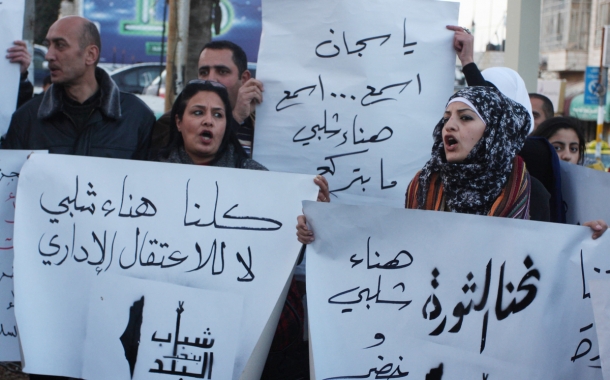 يا سجان
اسمع ... اسمع
هناء شلبي
ما بتركع
كلنا هناء شلبي
لا للاعتقال الإداري
شباب
بنحب
البلد
نحن الثورة
هناء
شلبي
و
خضر